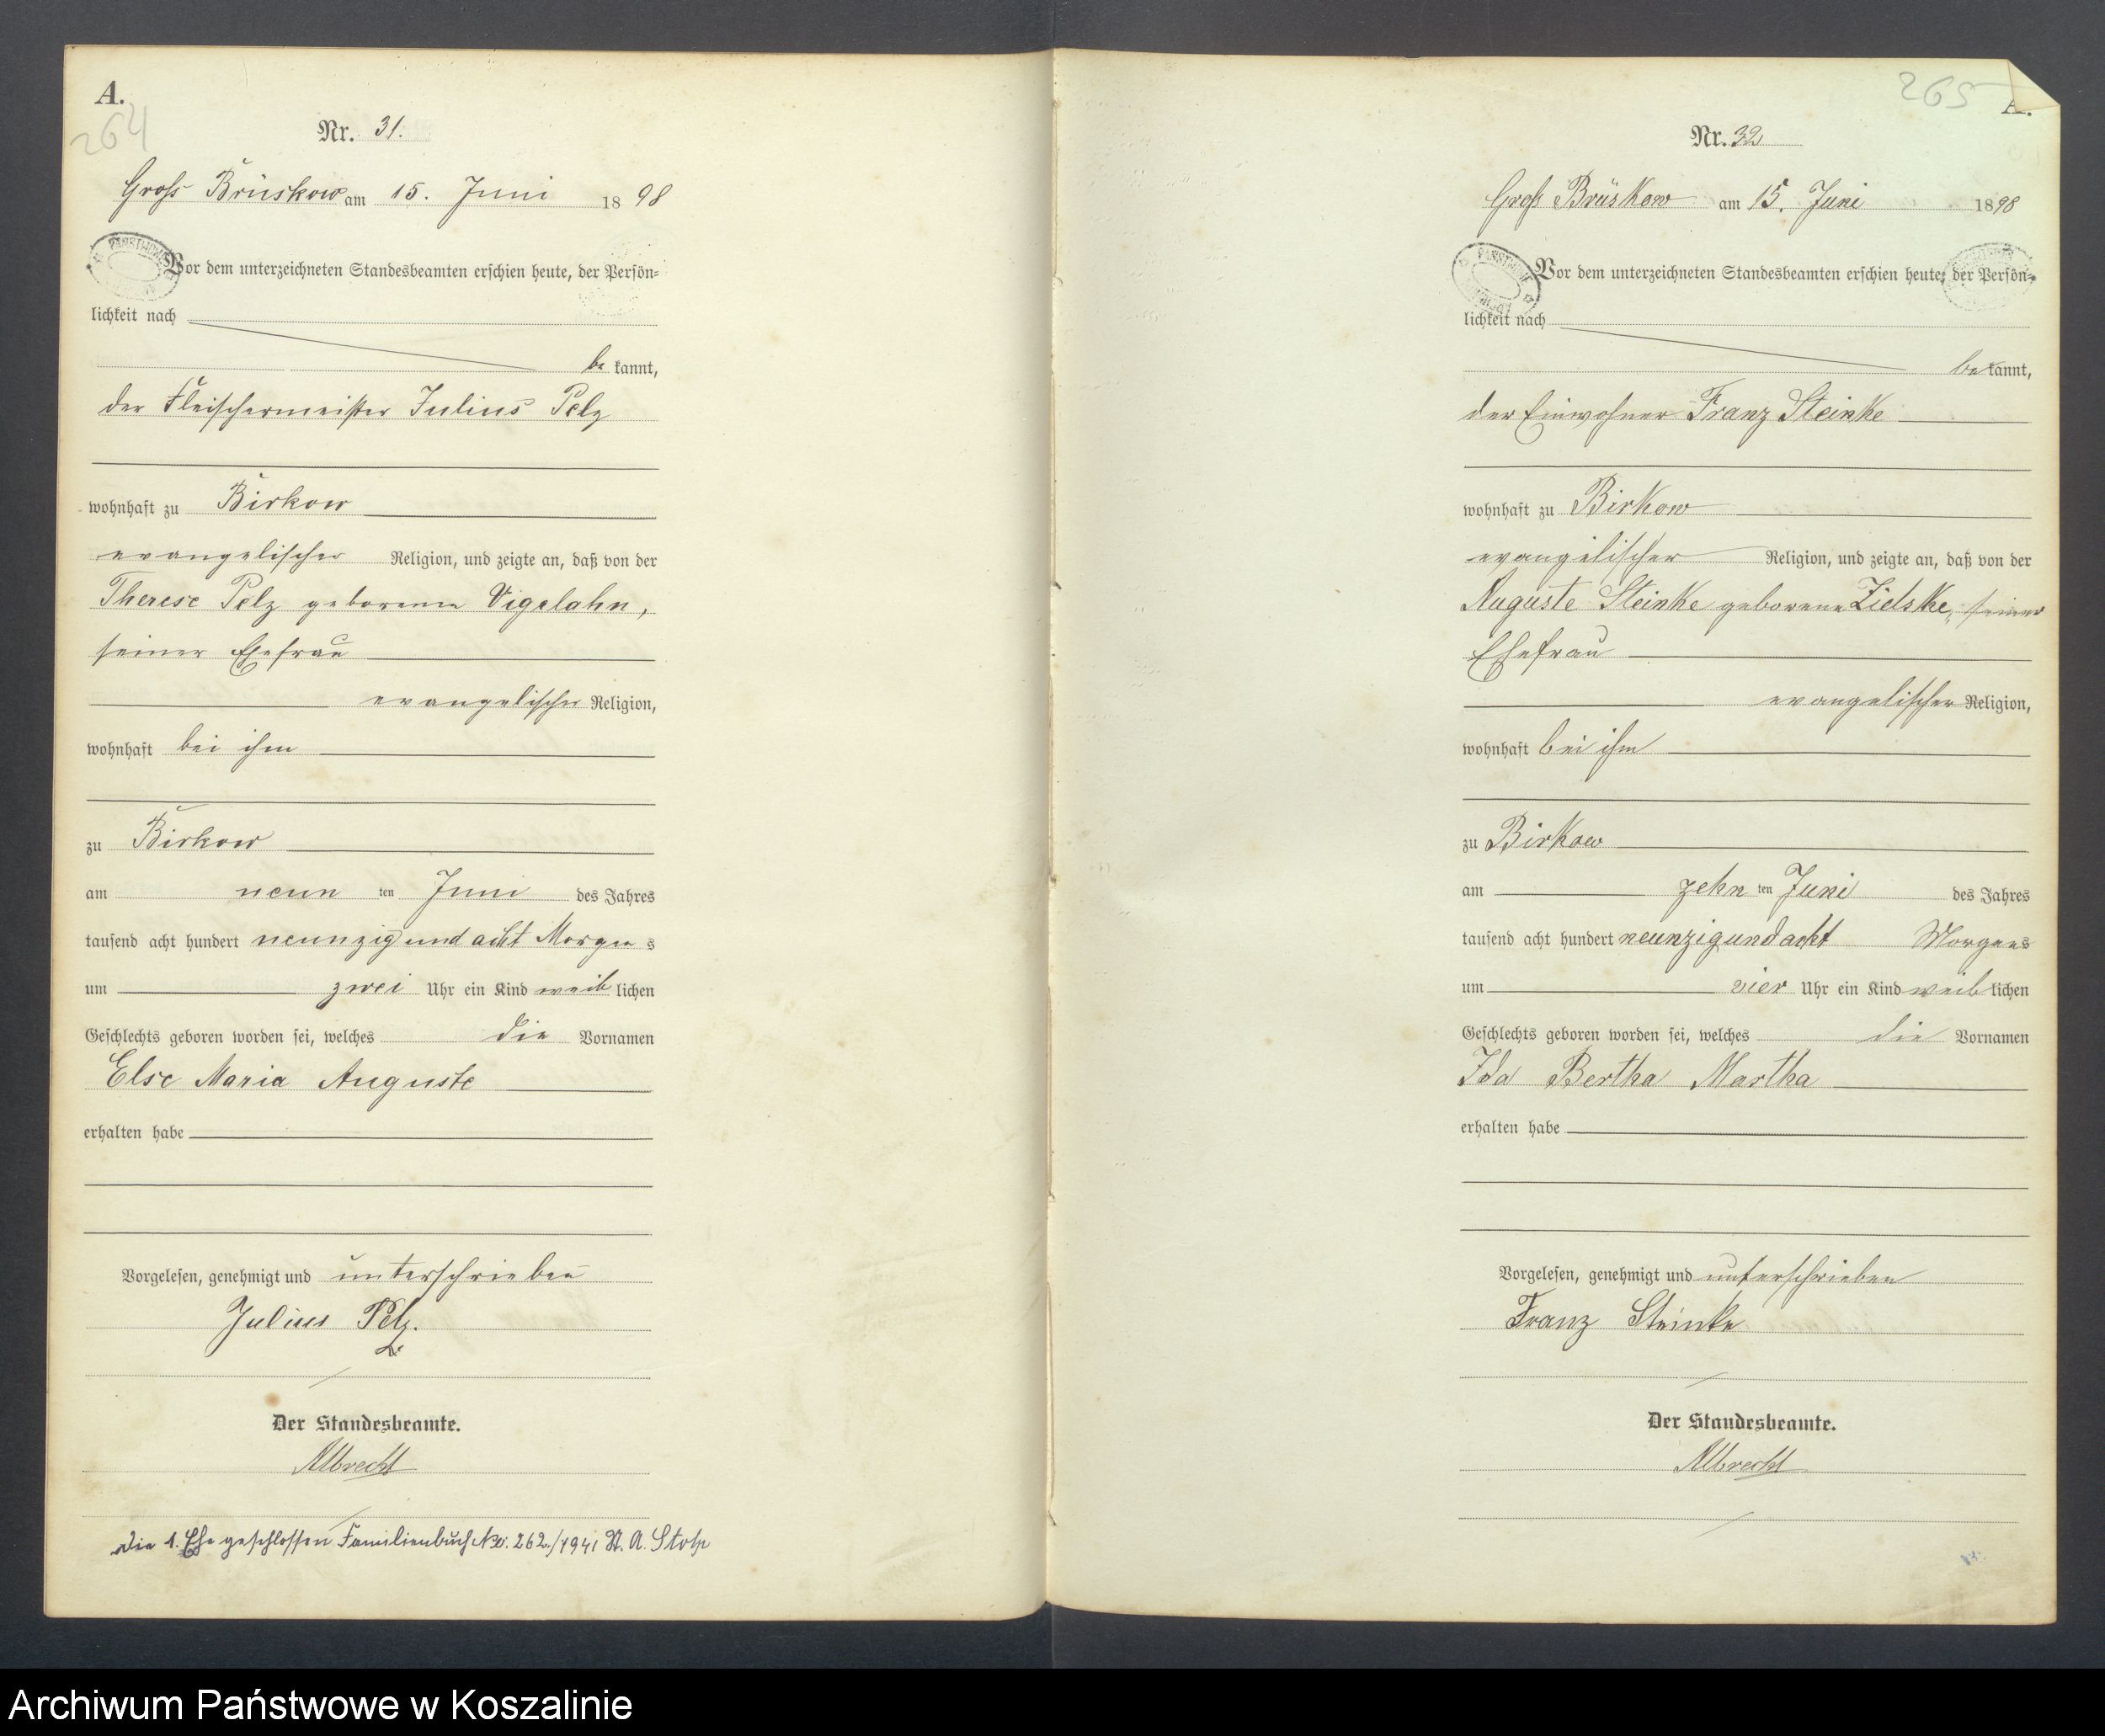 A.
264
Nr. 31.
Groß Brüskow am 15. Juni 1898
Vor dem unterzeichneten Standesbeamten erschien heute, der Persön=
lichkeit nach
be kannt,
der Fleischermeister Julius Pelz
wohnhaft zu Birkow
evangelischer Religion, und zeigte an, daß von der
Therese Pelz geborenen Vigelahn,
seiner Ehefrau
evangelischer Religion,
wohnhaft bei ihm
zu Birkow
am neun ten Juni des Jahres
tausend acht hundert neunzig und acht Morgens
um zwei Uhr ein Kind weiblichen
Geschlechts geboren worden sei, welches die Vornamen
Else Maria Auguste
erhalten habe
Vorgelesen, genehmigt und unterschrieben
Julius Pelz.
Der Standesbeamte.
Albrecht
Die 1. Ehe geschlossen Familienbuch No. 262/1941 St. A. Stolp
265
A.
Nr. 32
Groß Brüskow am 15. Juni 1898
Vor dem unterzeichneten Standesbeamten erschien heute, der Persön=
lichkeit nach
bekannt,
der Einwohner Franz Steinke
wohnhaft zu Birkow
evangelischer Religion, und zeigte an, daß von der
Auguste Steinke geborene Zielske, seiner
Ehefrau
evangelischer Religion,
wohnhaft bei ihm
zu Birkow
am zehn ten Juni des Jahres
tausend acht hundert neunzig und acht Morgens
um vier Uhr ein Kind weiblichen
Geschlechts geboren worden sei, welches die Vornamen
Ida Bertha Martha
erhalten habe
Vorgelesen, genehmigt und unterschrieben
Franz Steinke
Der Standesbeamte.
Albrecht
Archiwum Państwowe w Koszalinie